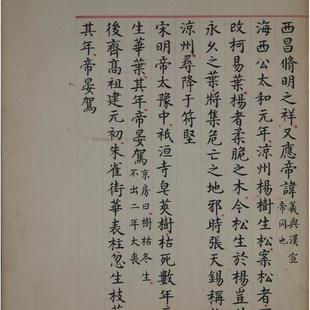 西昌脩明之祥又應帝諱義與漢宣帝同也
海西公太和元年涼州楊樹生松案松者
改柯易葉楊者柔脆之木今松生於楊豈
永久之葉將集危亡之地邪時張天錫稱
涼州尋降于符堅
宋明帝太豫中祇洹寺皂莢樹枯死數年
生華葉其年帝晏駕京房曰樹枯冬生不出二年大喪
後齊高祖建元初朱雀街華表柱忽生枝
其年帝晏駕